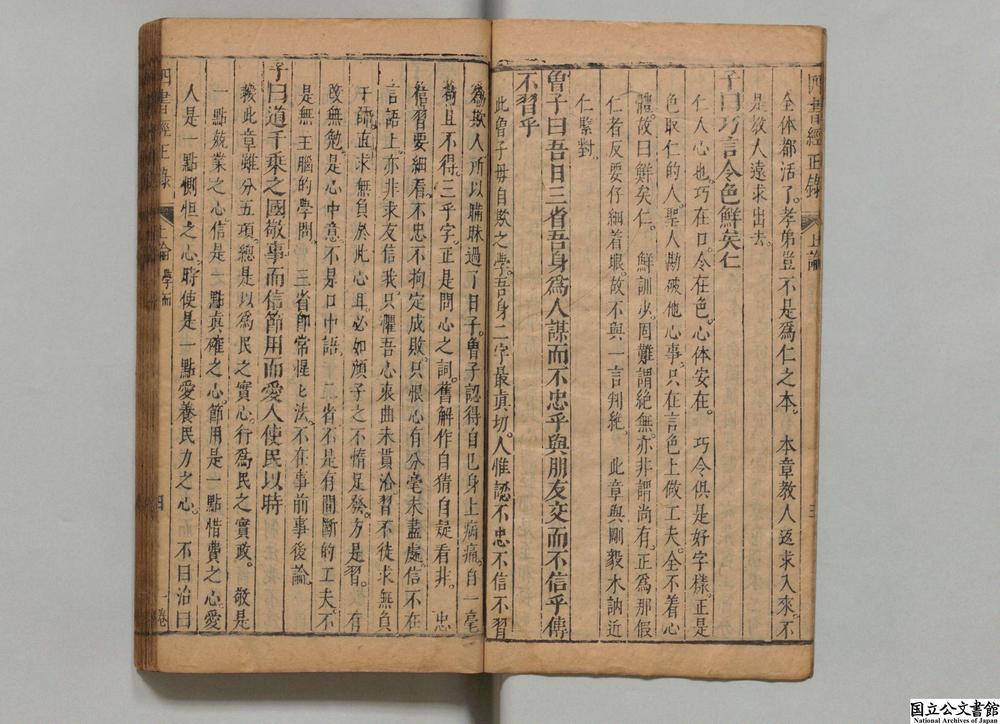 四書經正錄 上論 三
全体都活了。孝弟豈不是爲仁之本。 本章教人返求入來。不
是教人遠求出去。
子曰巧言令色鮮矣仁
仁人心也。巧在口。令在色。心体安在。 巧令俱是好字樣。正是
色取仁的人。聖人勘破他心事。只在言色上做工夫。全不着心
體。故曰鮮矣仁。 鮮訓少。固難謂絕無。亦非謂尚有。正爲那假
仁者反要仔細着眼。故不與一言判絶。 此章與剛毅木訥近
仁緊對。
曾子曰吾日三省吾身爲人謀而不忠乎與朋友交而不信乎傳
不習乎
此曾子毋自欺之學。吾身二字最真切。人惟認不忠不信不習
爲欺人。所以瞞昧過了日子。曾子認得自己身上病痛。自一毫
苟且不得。三乎字正是問心之詞。舊解作自猜自疑看非。 忠
信習要細看。不忠不拘定成敗。只恨心有分毫未盡處。信不在
言語上。亦非求友信我。只懼吾心衷曲未貫洽。習不徒求無負
于師。直求無負於此心耳。必如顔子之不惰足發。方是習。 有
改無勉。是心中意。不是口中語。 三省不是有間斷的工夫。不
是無王腦的學問。 三省卽常惺〻法。不在事前事後論。
子曰道千乘之國敬事而信節用而愛人使民以時
義此章雖分五項。總是以爲民之實心。行爲民之實政。 敬是
一點兢業之心。信是一點真確之心。節用是一點惜費之心。愛
人是一點惻怛之心。時使是一點愛養民力之心。 不曰治曰
四書經正錄 上論 學而 四 一卷
国立公文書館
National Archives of Japan